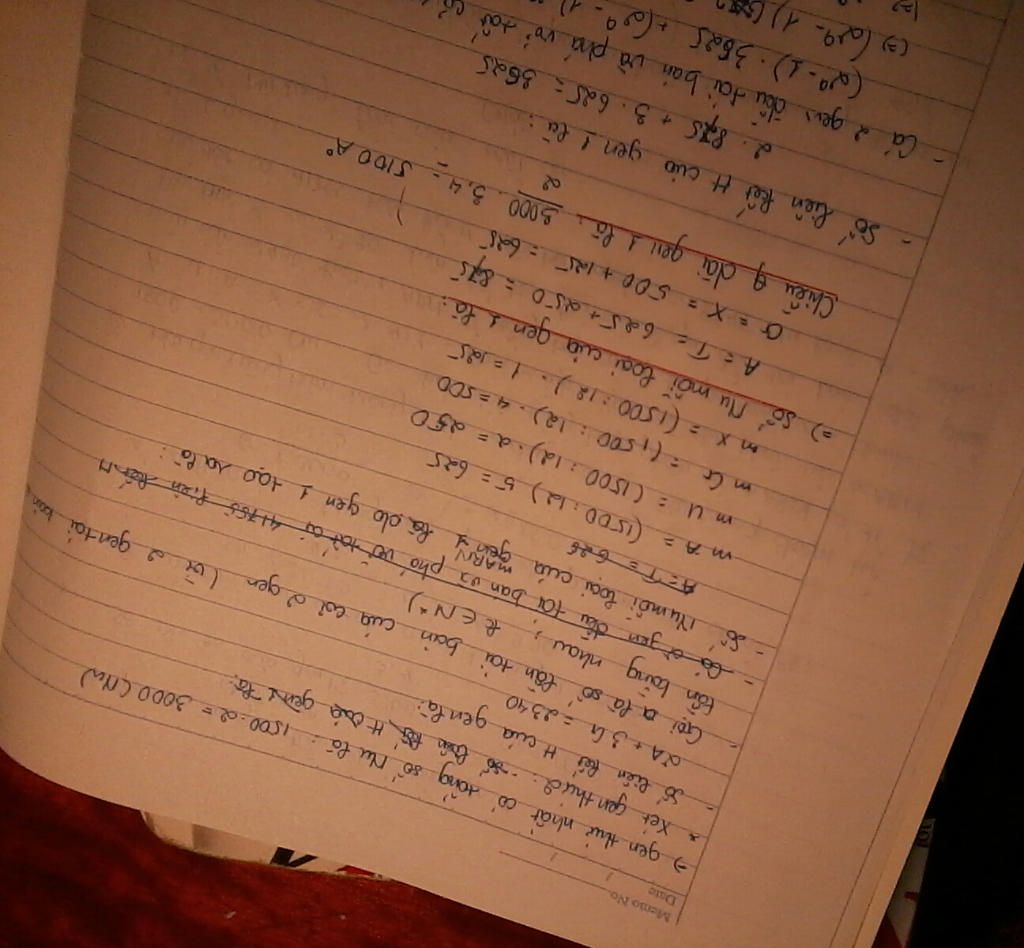 Memo No.
Date / /
→ gen thứ nhất có tổng số Nu là : 1500 . 2 = 3000 (Nu)
* Xét gen thứ 2 : - số liên kết H của gen 1 là:
- Số liên kết H của gen là :
2A + 3G = 2340
- Gọi a là số lần tái bản của cả 2 gen (vì 2 gen tái bản
lần bằng nhau , k ∈ N*)
- Cả 2 gen đều tái bản và phá vỡ tất cả 41755 liên kết H
- Số Nu mỗi loại của mARN gen 1 do gen 1 tạo ra là :
A = T = 625
mA = (1500 : 12) 5 = 625
mU = (1500 : 12) . 2 = 250
mG = (1500 : 12) . 4 = 500
mX = (1500 : 12) . 1 = 125
=) Số Nu mỗi loại của gen 1 là :
A = T = 625 + 250 = 875
G = X = 500 + 125 = 625
Chiều dài gen 1 là : 3000/2 . 3,4 = 5100 A°
- Số liên kết H của gen 1 là :
2 . 875 + 3 . 625 = 3625
- Cả 2 gen đều tái bản và phá vỡ tất cả
(2^a - 1) . 3625 + (2^a - 1)
(=) (2^a - 1) (